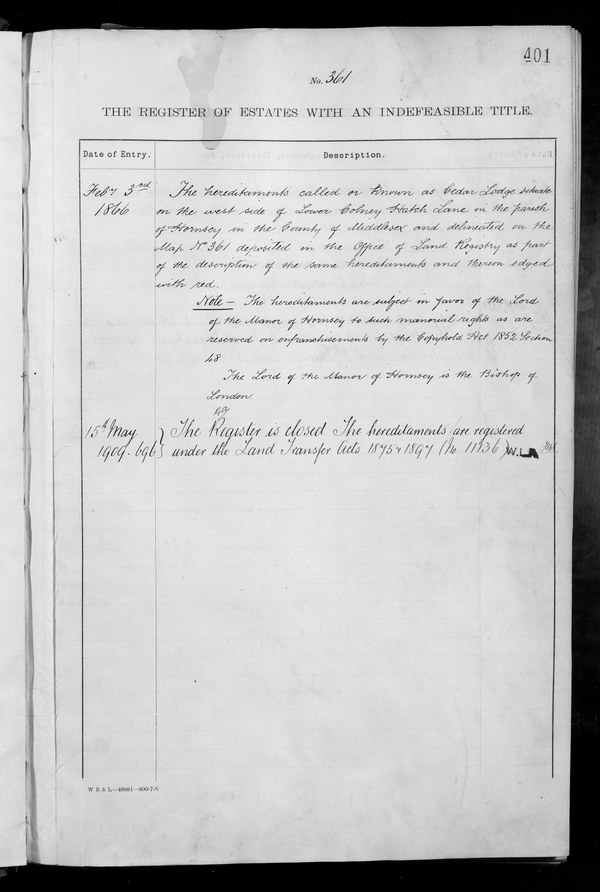 401
No. 361
THE REGISTER OF ESTATES WITH AN INDEFEASIBLE TITLE.
Date of Entry.
Description.
Feby 3rd
1866
The hereditaments called or known as Cedar Lodge situate
on the west side of Lower Colney Hatch Lane in the parish
of Hornsey in the County of Middlesex and delineated on the
Map No 361 deposited in the Office of Land Registry as part
of the description of the same hereditaments and thereon edged
with red.
Note — The hereditaments are subject in favor of the Lord
of the Manor of Hornsey to such manorial rights as are
reserved on enfranchisements by the Copyhold Act 1852 Section
48
The Lord of the Manor of Hornsey is the Bishop of
London.
15th May
1909. 696
The Register is closed The hereditaments are registered
under the Land Transfer Acts 1875 & 1897 (No. 11136) W.L.A
W B & L—48881—800-7-6